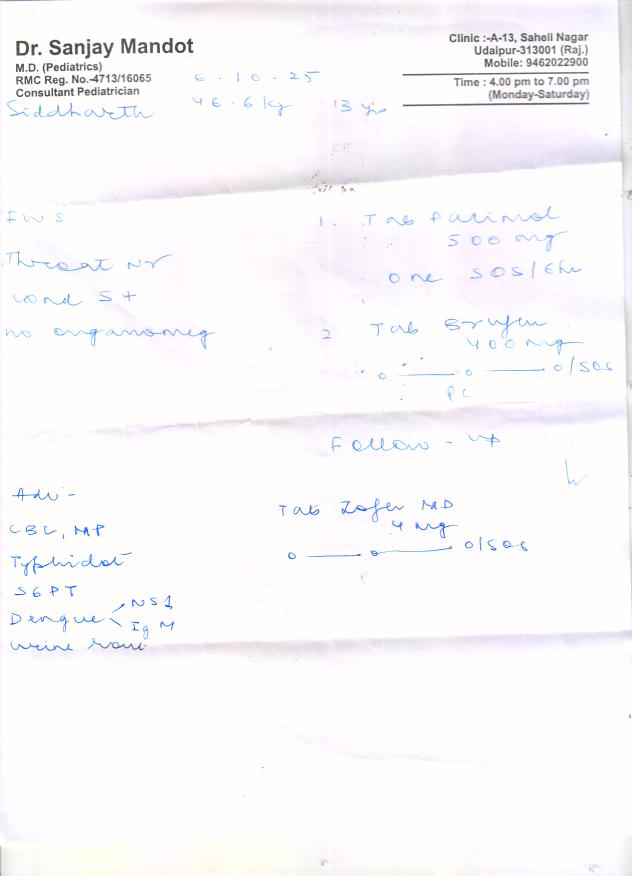 Dr. Sanjay Mandot
M.D. (Pediatrics)
RMC Reg. No.-4713/16065
Consultant Pediatrician
Clinic :-A-13, Saheli Nagar
Udaipur-313001 (Raj.)
Mobile: 9462022900
Time : 4.00 pm to 7.00 pm
(Monday-Saturday)
6.10.25
Siddharth 46.6 kg 13 yrs
Throat Nr
no organomeg
1. Tab Pacimol
500 mg
one SOS/6hr
2 Tab Brufen
400 mg
o — o — o/SOS
PC
Follow-up
Adv-
CBC, MP
Typhidot
SGPT
Dengue NS1
IgM
urine rout
Tab Zofer MD
4 mg
o — o — o/SOS